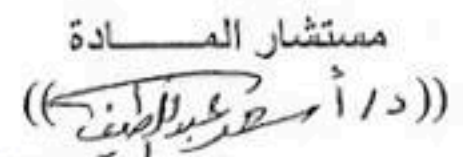 مستشار المــــــادة
((د/أسعد عبداللطيف))